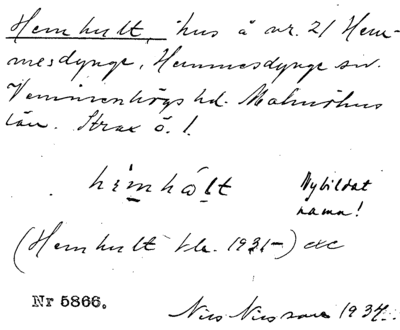 Hemhult, hus å nr. 21 Hem-
mesdynge, Hemmesdynge sn.
Vemmenhögs hd. Malmöhus
län. Strax ö. l.
hèmhↄ̀lt
Nybildat
namn!
(Hemhult kla. 1931–)
Nr 5866.
Nils Nilsson 1937.